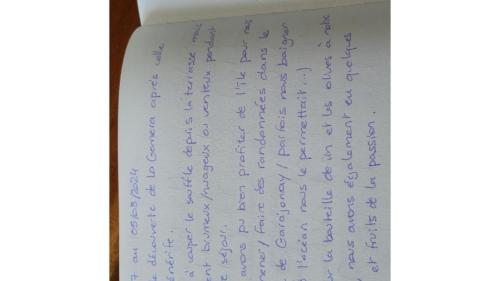 7 au 05/03/2024
e découverte de la Gomera après celle
énérife.
à couper le souffle depuis la terrasse mais
ent brumeux/nuageux ou venteux pendant
e séjour.
avons pu bien profiter de l'île pour nous
mener/faire des randonnées dans le
de Garajonay/parfois nous baigner
l'océan nous le permettait...)
ur la bouteille de vin et les olives à notre
nous avons également eu quelques
et fruits de la passion.